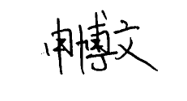 申博文